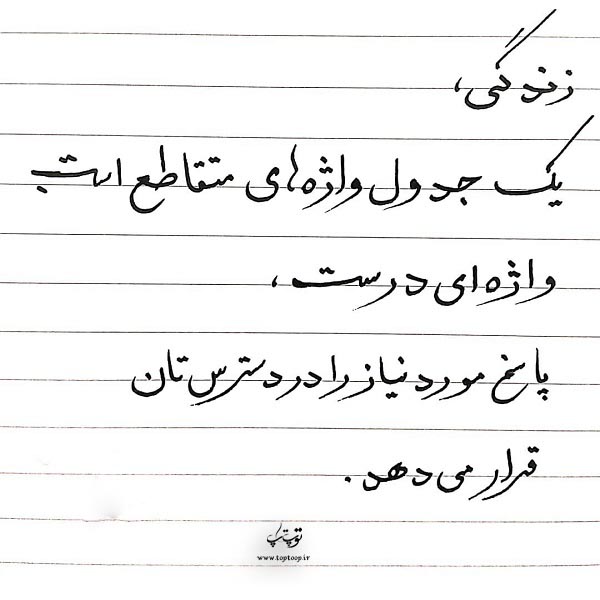 زندگی،
یک جدول واژه‌های متقاطع است
واژه‌ای درست،
پاسخ مورد نیاز را در دسترس‌تان
قرار می‌دهد.
توپتاپ
www.toptoop.ir